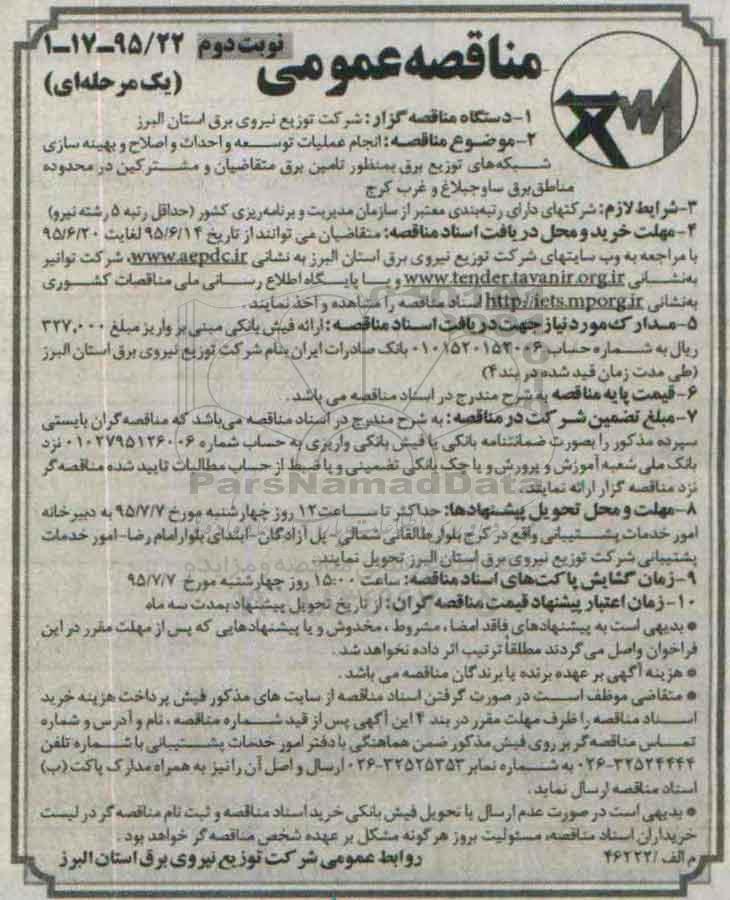 مناقصه عمومی نوبت دوم ۹۵/۲۲-۱۷-۱
(یک مرحله‌ای)
۱-دستگاه مناقصه گزار: شرکت توزیع نیروی برق استان البرز
۲-موضوع مناقصه: انجام عملیات توسعه و احداث و اصلاح و بهینه سازی
شبکه‌های توزیع برق بمنظور تامین برق متقاضیان و مشترکین در محدوده
مناطق برق ساوجبلاغ و غرب کرج
۳-شرایط لازم: شرکتهای دارای رتبه‌بندی معتبر از سازمان مدیریت و برنامه‌ریزی کشور (حداقل رتبه ۵ رشته نیرو)
۴-مهلت خرید و محل دریافت اسناد مناقصه: متقاضیان می توانند از تاریخ ۹۵/۶/۱۴ لغایت ۹۵/۶/۲۰
با مراجعه به وب سایتهای شرکت توزیع نیروی برق استان البرز به نشانی www.aepdc.ir، شرکت توانیر
به‌نشانی www.tender.tavanir.org.ir و یا پایگاه اطلاع رسانی ملی مناقصات کشوری
به‌نشانی http://iets.mporg.ir اسناد مناقصه را مشاهده و اخذ نمایند.
۵-مدارک مورد نیاز جهت دریافت اسناد مناقصه: ارائه فیش بانکی مبنی بر واریز مبلغ ۳۲۷,۰۰۰
ریال به شماره حساب ۰۱۰۱۵۲۰۱۵۲۰۰۶ بانک صادرات ایران بنام شرکت توزیع نیروی برق استان البرز
(طی مدت زمان قید شده در بند ۴)
۶-قیمت پایه مناقصه به شرح مندرج در اسناد مناقصه می باشد.
۷-مبلغ تضمین شرکت در مناقصه: به شرح مندرج در اسناد مناقصه می‌باشد که مناقصه‌گران بایستی
سپرده مذکور را بصورت ضمانتنامه بانکی یا فیش بانکی واریزی به حساب شماره ۰۱۰۲۷۹۵۱۲۶۰۰۶ نزد
بانک ملی شعبه آموزش و پرورش و یا چک بانکی تضمینی و یا ضبط از حساب مطالبات تایید شده مناقصه‌گر
نزد مناقصه گزار ارائه نمایند.
ParsNamadData
۸-مهلت و محل تحویل پیشنهادها: حداکثر تا ساعت ۱۲ روز چهارشنبه مورخ ۹۵/۷/۷ به دبیرخانه
امور خدمات پشتیبانی واقع در کرج بلوار طالقانی شمالی-پل آزادگان-ابتدای بلوار امام رضا-امور خدمات
پشتیبانی شرکت توزیع نیروی برق استان البرز تحویل نمایند.
۹-زمان گشایش پاکت‌های اسناد مناقصه: ساعت ۱۵:۰۰ روز چهارشنبه مورخ ۹۵/۷/۷
۱۰-زمان اعتبار پیشنهاد قیمت مناقصه گران: از تاریخ تحویل پیشنهاد بمدت سه ماه
* بدیهی است به پیشنهادهای فاقد امضا، مشروط، مخدوش و یا پیشنهادهایی که پس از مهلت مقرر در این
فراخوان واصل می گردند مطلقا ترتیب اثر داده نخواهد شد.
* هزینه آگهی بر عهده برنده یا برندگان مناقصه می باشد.
* متقاضی موظف است در صورت گرفتن اسناد مناقصه از سایت های مذکور فیش پرداخت هزینه خرید
اسناد مناقصه را ظرف مهلت مقرر در بند ۴ این آگهی پس از قید شماره مناقصه، نام و آدرس و شماره
تماس مناقصه‌گر بر روی فیش مذکور ضمن هماهنگی با دفتر امور خدمات پشتیبانی با شماره تلفن
۰۲۶-۳۲۵۲۴۴۴۴ به شماره نمابر ۰۲۶-۳۲۵۲۵۳۵۳ ارسال و اصل آن را نیز به همراه مدارک پاکت (ب)
اسناد مناقصه ارسال نماید.
* بدیهی است در صورت عدم ارسال یا تحویل فیش بانکی خرید اسناد مناقصه و ثبت نام مناقصه گر در لیست
خریداران اسناد مناقصه، مسئولیت بروز هرگونه مشکل بر عهده شخص مناقصه گر خواهد بود.
م الف /۴۶۲۲۲ روابط عمومی شرکت توزیع نیروی برق استان البرز